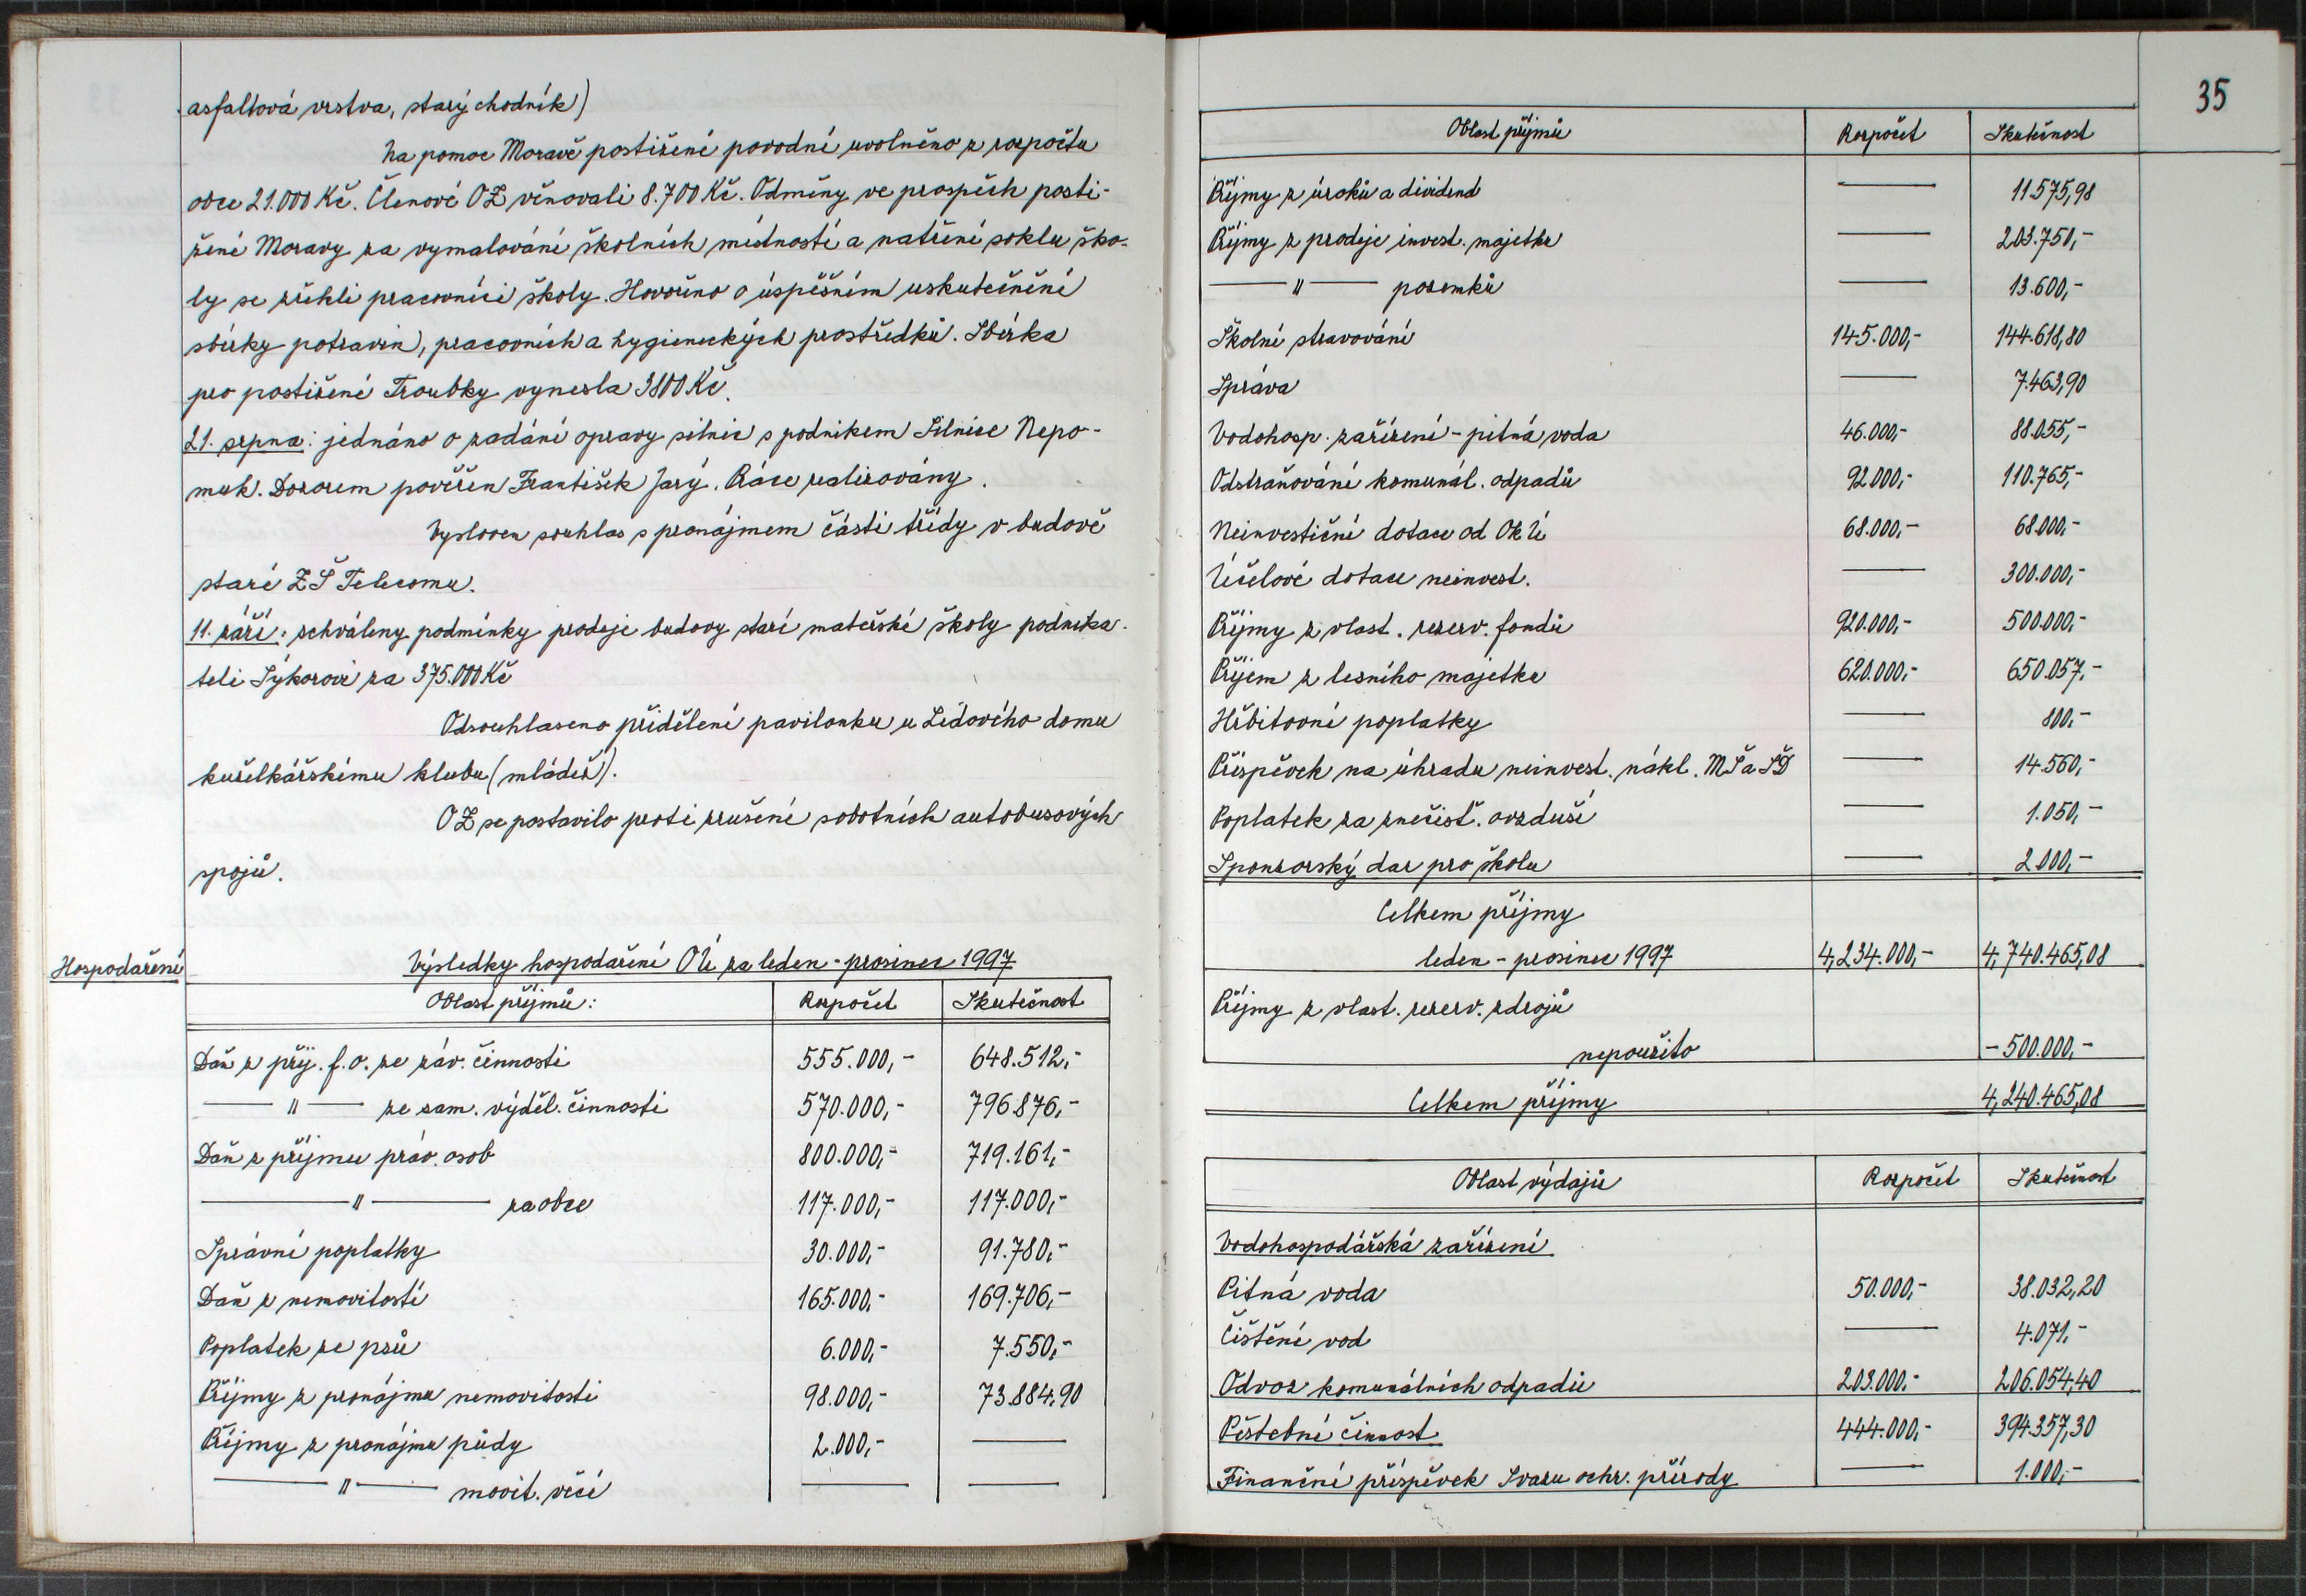 asfaltová vrstva, starý chodník)
Na pomoc Moravě postižené povodní uvolněno z rozpočtu
obce 21.000 Kč. Členové OZ věnovali 8.700 Kč. Odměny ve prospěch posti-
žené Moravy za vymalování školních místností a natření soklu ško-
ly se zřekli pracovníci školy. Hovořeno o úspěšném uskutečnění
sbírky potravin, pracovních a hygienických prostředků. Sbírka
pro postižené Troubky vynesla 3800 Kč.
21. srpna: jednáno o zadání opravy silnic s podnikem Silnice Nepo-
muk. Dozorem pověřen František Jarý. Práce realizovány.
Vysloven souhlas s pronájmem části třídy v budově
staré ZŠ Telecomu.
11. září: schváleny podmínky prodeje budovy staré mateřské školy podnika-
teli Sýkorovi za 375.000 Kč
Odsouhlaseno přidělení pavilonku u Lidového domu
kuželkářskému klubu (mládež).
OZ se postavilo proti zrušení sobotních autobusových
spojů.
Hospodaření
Výsledky hospodaření OÚ za leden - prosinec 1997
Oblast příjmů: Rozpočet Skutečnost
Daň z příj. f.o. ze záv. činnosti 555.000,- 648.512,-
— " — ze sam. výděl. činnosti 570.000,- 796.876,-
Daň z příjmu práv. osob 800.000,- 719.161,-
— " — za obce 117.000,- 117.000,-
Správní poplatky 30.000,- 91.780,-
Daň z nemovitostí 165.000,- 169.706,-
Poplatek ze psů 6.000,- 7.550,-
Příjmy z pronájmu nemovitosti 98.000,- 73.884,90
Příjmy z pronájmu půdy 2.000,- —
— " — movit. věcí — —
35
Oblast příjmů Rozpočet Skutečnost
Příjmy z úroků a dividend — 11.575,98
Příjmy z prodeje invest. majetku — 203.750,-
— " — pozemků — 13.600,-
Školní stravování 145.000,- 144.618,80
Správa — 7.463,90
Vodohosp. zařízení - pitná voda 46.000,- 88.055,-
Odstraňování komunál. odpadů 92.000,- 110.765,-
Neinvestiční dotace od OkÚ 68.000,- 68.000,-
Účelové dotace neinvest. — 300.000,-
Příjmy z vlast. rezerv. fondů 920.000,- 500.000,-
Příjem z lesního majetku 620.000,- 650.057,-
Hřbitovní poplatky — 800,-
Příspěvek na úhradu neinvest. nákl. MŠ a ŠD — 14.560,-
Poplatek za znečišť. ovzduší — 1.050,-
Sponzorský dar pro školu — 2.000,-
Celkem příjmy
leden - prosinec 1997 4,234.000,- 4,740.465,08
Příjmy z vlast. rezerv. zdrojů
nepoužito - 500.000,-
Celkem příjmy 4,240.465,08
Oblast výdajů Rozpočet Skutečnost
Vodohospodářská zařízení
Pitná voda 50.000,- 38.032,20
Čištění vod — 4.071,-
Odvoz komunálních odpadů 203.000,- 206.054,40
Pěstební činnost 444.000,- 394.357,30
Finanční příspěvek Svazu ochr. přírody — 1.000,-